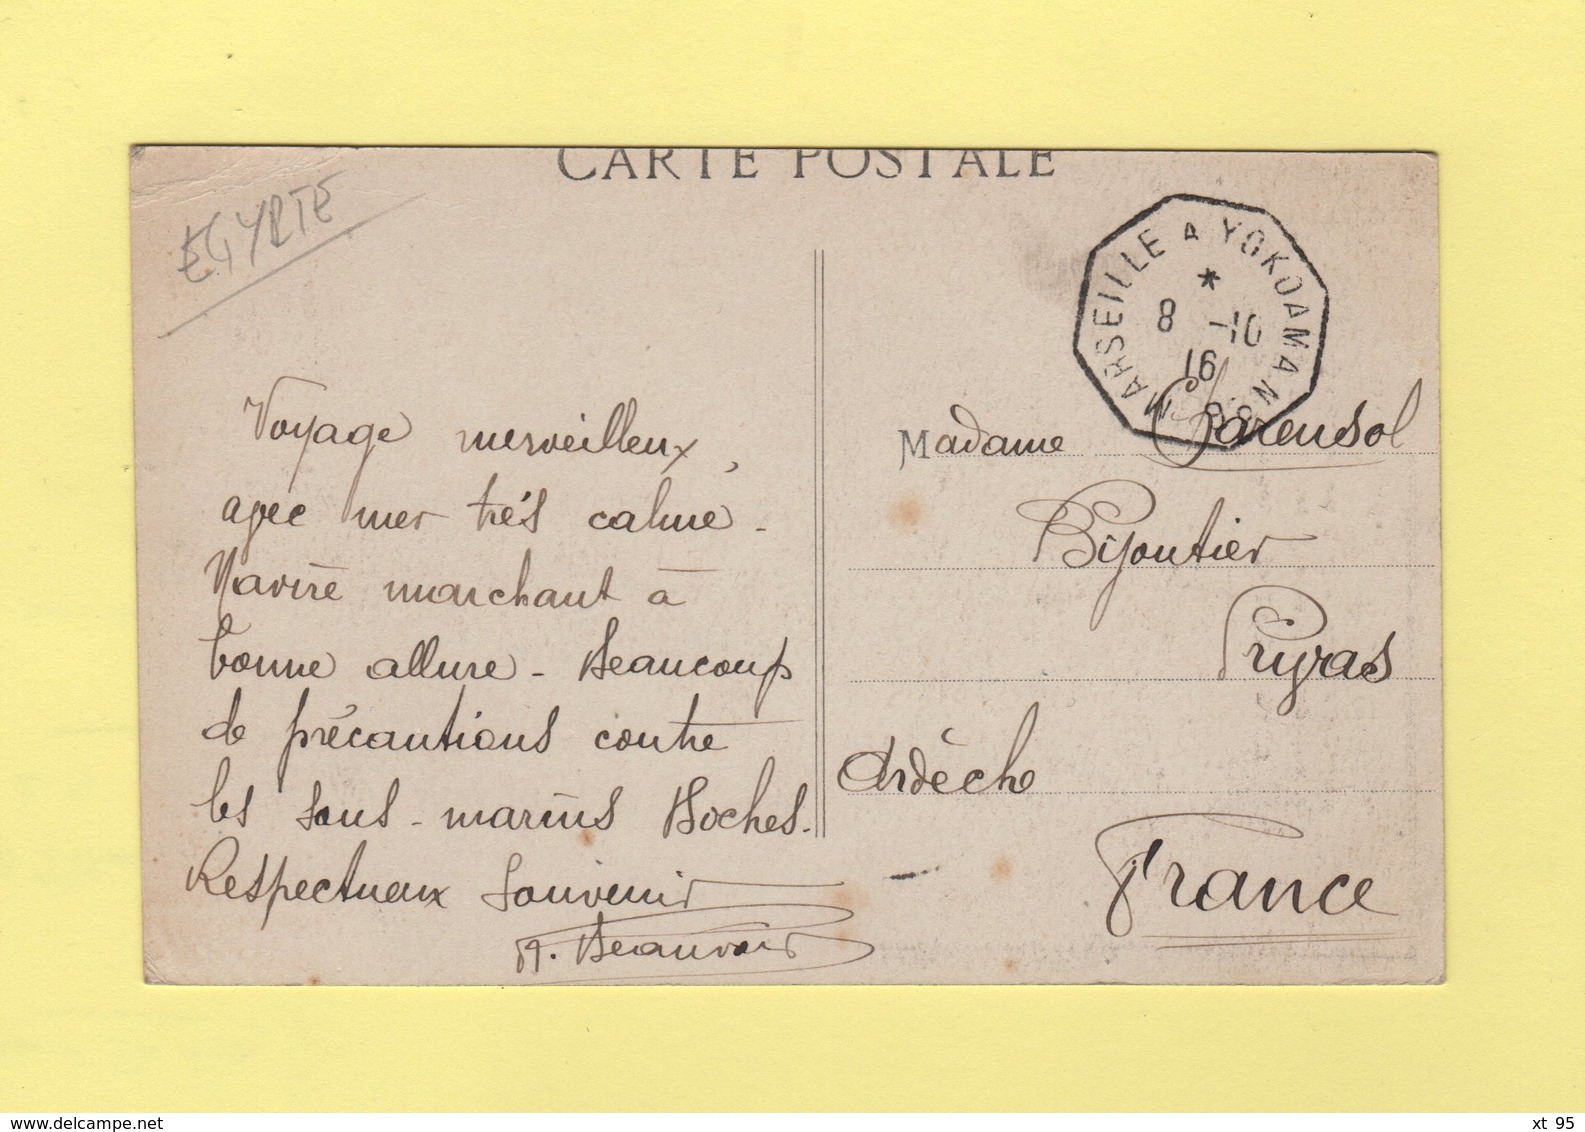 CARTE POSTALE
EGYPTE
MARSEILLE A YOKOAMA N
8 -10
16
Voyage merveilleux,
avec mer très calme -
Navire marchant à
bonne allure - Beaucoup
de précautions contre
les sous-marins Boches.
Respectueux Souvenir
Beauvoir
Madame Charensol
Bijoutier
Privas
Ardèche
France
www.delcampe.net
xt 95